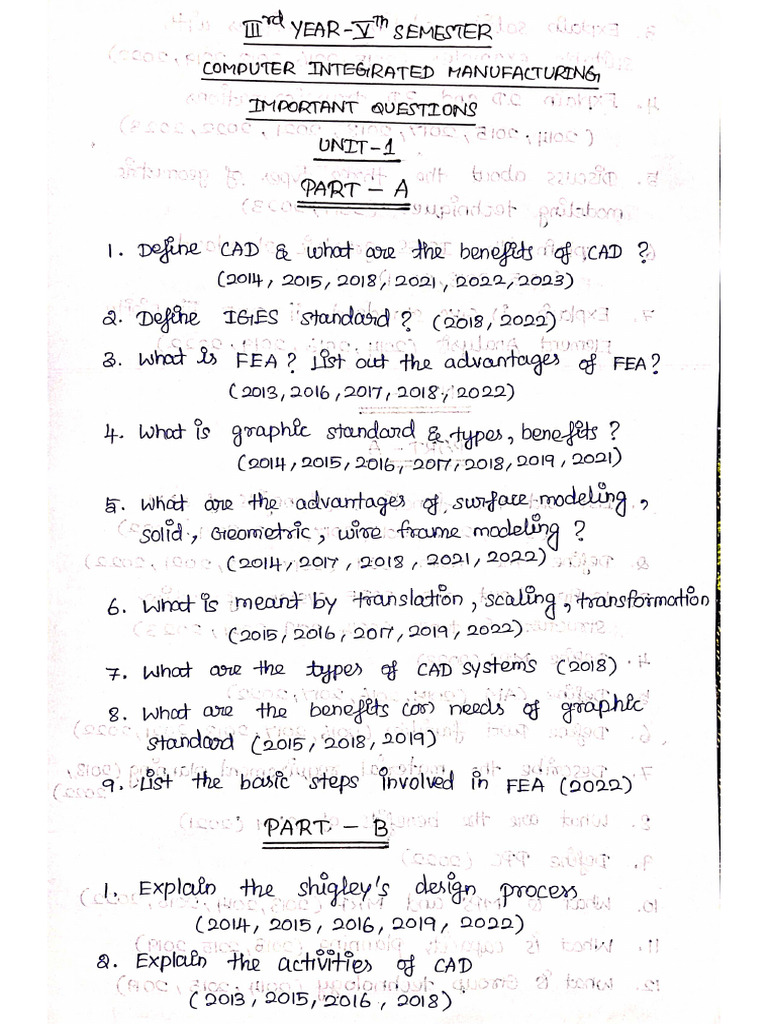 IIIrd YEAR - Vth SEMESTER
COMPUTER INTEGRATED MANUFACTURING
IMPORTANT QUESTIONS
UNIT-1
PART - A
1. Define CAD & what are the benefits of CAD ?
(2014, 2015, 2018, 2021, 2022, 2023)
2. Define IGES standard? (2018, 2022)
3. What is FEA? List out the advantages of FEA?
(2013, 2016, 2017, 2018, 2022)
4. What is graphic standard & types, benefits ?
(2014, 2015, 2016, 2017, 2018, 2019, 2021)
5. What are the advantages of surface modeling,
solid, Geometric, wire frame modeling ?
(2014, 2017, 2018, 2021, 2022)
6. What is meant by translation, scaling, transformation
(2015, 2016, 2017, 2019, 2022)
7. What are the types of CAD systems (2018)
8. What are the benefits (or) needs of graphic
standard (2015, 2018, 2019)
9. List the basic steps involved in FEA (2022)
PART - B
1. Explain the shigley's design process
(2014, 2015, 2016, 2019, 2022)
2. Explain the activities of CAD
(2013, 2015, 2016, 2018)